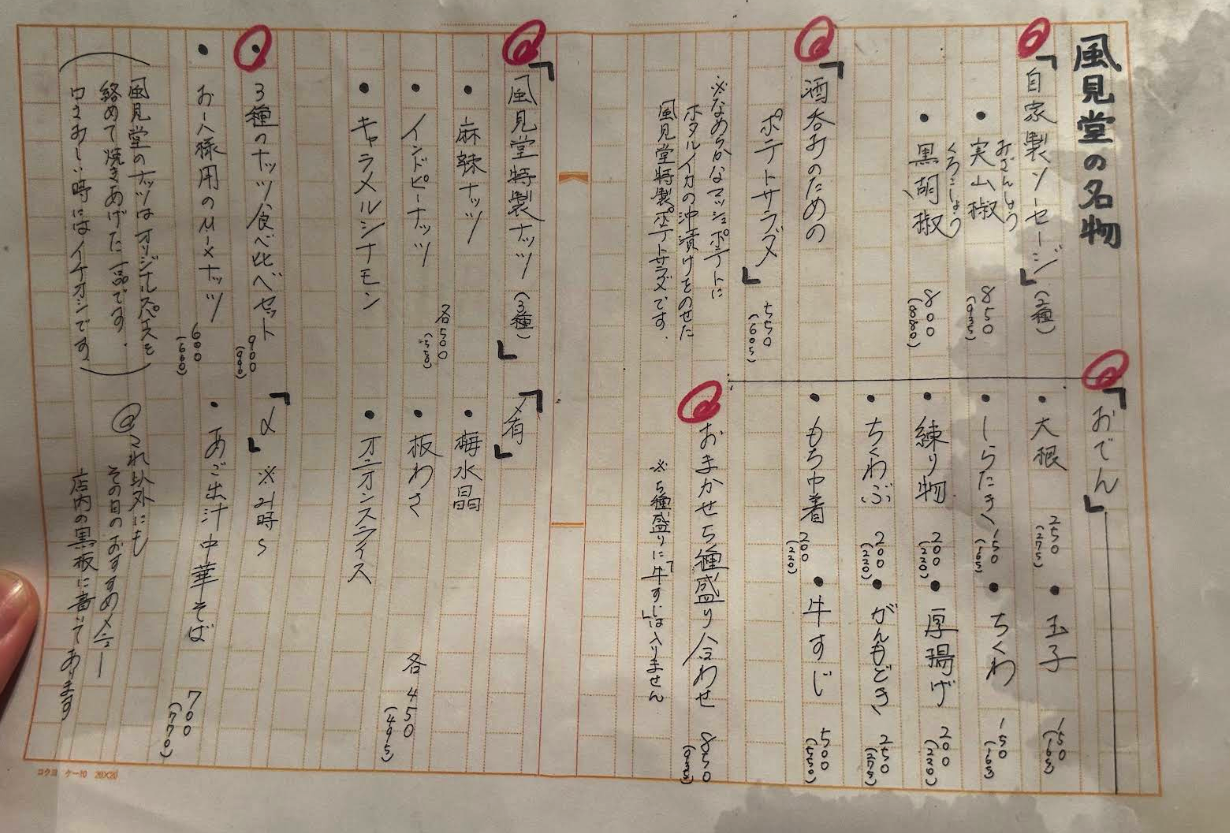 風見堂の名物
「自家製ソーセージ」(2種)
• 実山椒 850 (935)
みざんしょう
• 黒胡椒 800 (880)
くろこしょう
「酒呑みのための
ポテトサラダ」 550 (605)
※なめらかなマッシュポテトに
ホタルイカの沖漬けをのせた
風見堂特製ポテトサラダです.
「風見堂特製ナッツ(3種)」
• 麻辣ナッツ
• インドピーナッツ 各500 (550)
• キャラメルシナモン
• 3種のナッツ食べ比べセット 900 (990)
• お一人様用のMIXナッツ 600 (660)
(風見堂のナッツはオリジナルスパイスを
絡めて焼きあげた一品です.
口さみしい時にはイチオシです。)
「おでん」
• 大根 250 (275)
• 玉子 150 (165)
• しらたき 150 (165)
• ちくわ 150 (165)
• 練り物 200 (220)
• 厚揚げ 200 (220)
• ちくわぶ 200 (220)
• がんもどき 250 (275)
• もち巾着 200 (220)
• 牛すじ 500 (550)
おまかせ5種盛り合わせ 850 (935)
※5種盛りに「牛すじ」は入りません
「肴」
• 梅水晶
• 板わさ 各450 (495)
• オニオンスライス
「〆」※21時〜
• あご出汁中華そば 700 (770)
@これ以外にも
その日のおすすめメニュー
店内の黒板に書いてあります
コクヨ ケ-10 20×20